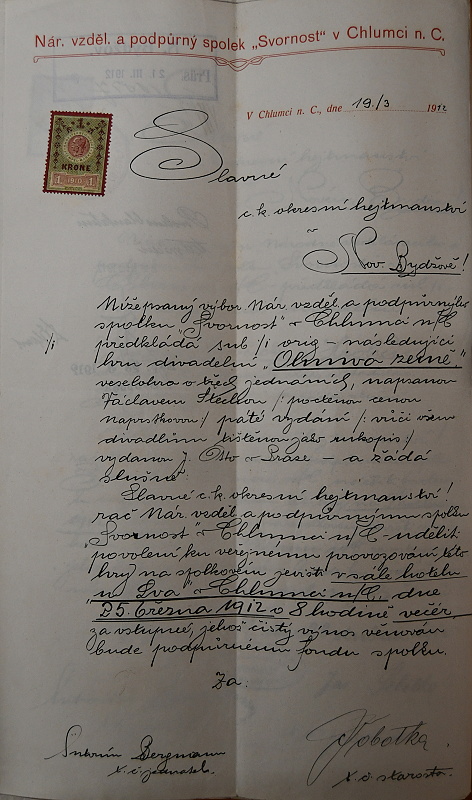 Nár. vzděl. a podpůrný spolek „Svornost" v Chlumci n. C.
V Chlumci n. C., dne 19./3 1912
1
KRONE
1 1910 1
Slavné
c.k. okresní hejtmanství
v Nov. Bydžově!
Nížepsaný výbor Nár. vzděl. a podpůrného
spolku „Svornost" v Chlumci n/C
1/i předkládá sub 1/i orig. – následující
hru divadelní „Ohnivá země,"
veselohra o třech jednáních, napsanou
Václavem Štechem /: poctěnou cenou
náprstkovou :/ páté vydání /: vůči všem
divadlům tištěnou jako rukopis :/
vydanou J. Otto v Praze – a žádá
slušně:
Slavné c.k. okresní hejtmanství!
rač Nár. vzděl. a podpůrnému spolku
„Svornost" v Chlumci n/C – uděliti
povolení ku veřejnému provozování této
hry na spolkovém jevišti v sále hotelu
„u Lva" v Chlumci n/C, dne
25. března 1912 o 8 hodině večer,
za vstupné, jehož čistý výnos věnován
bude podpůrnému fondu spolku.
Za:
Antonín Bergmann
t. č. jednatel.
Sobotka
t. č. starosta.